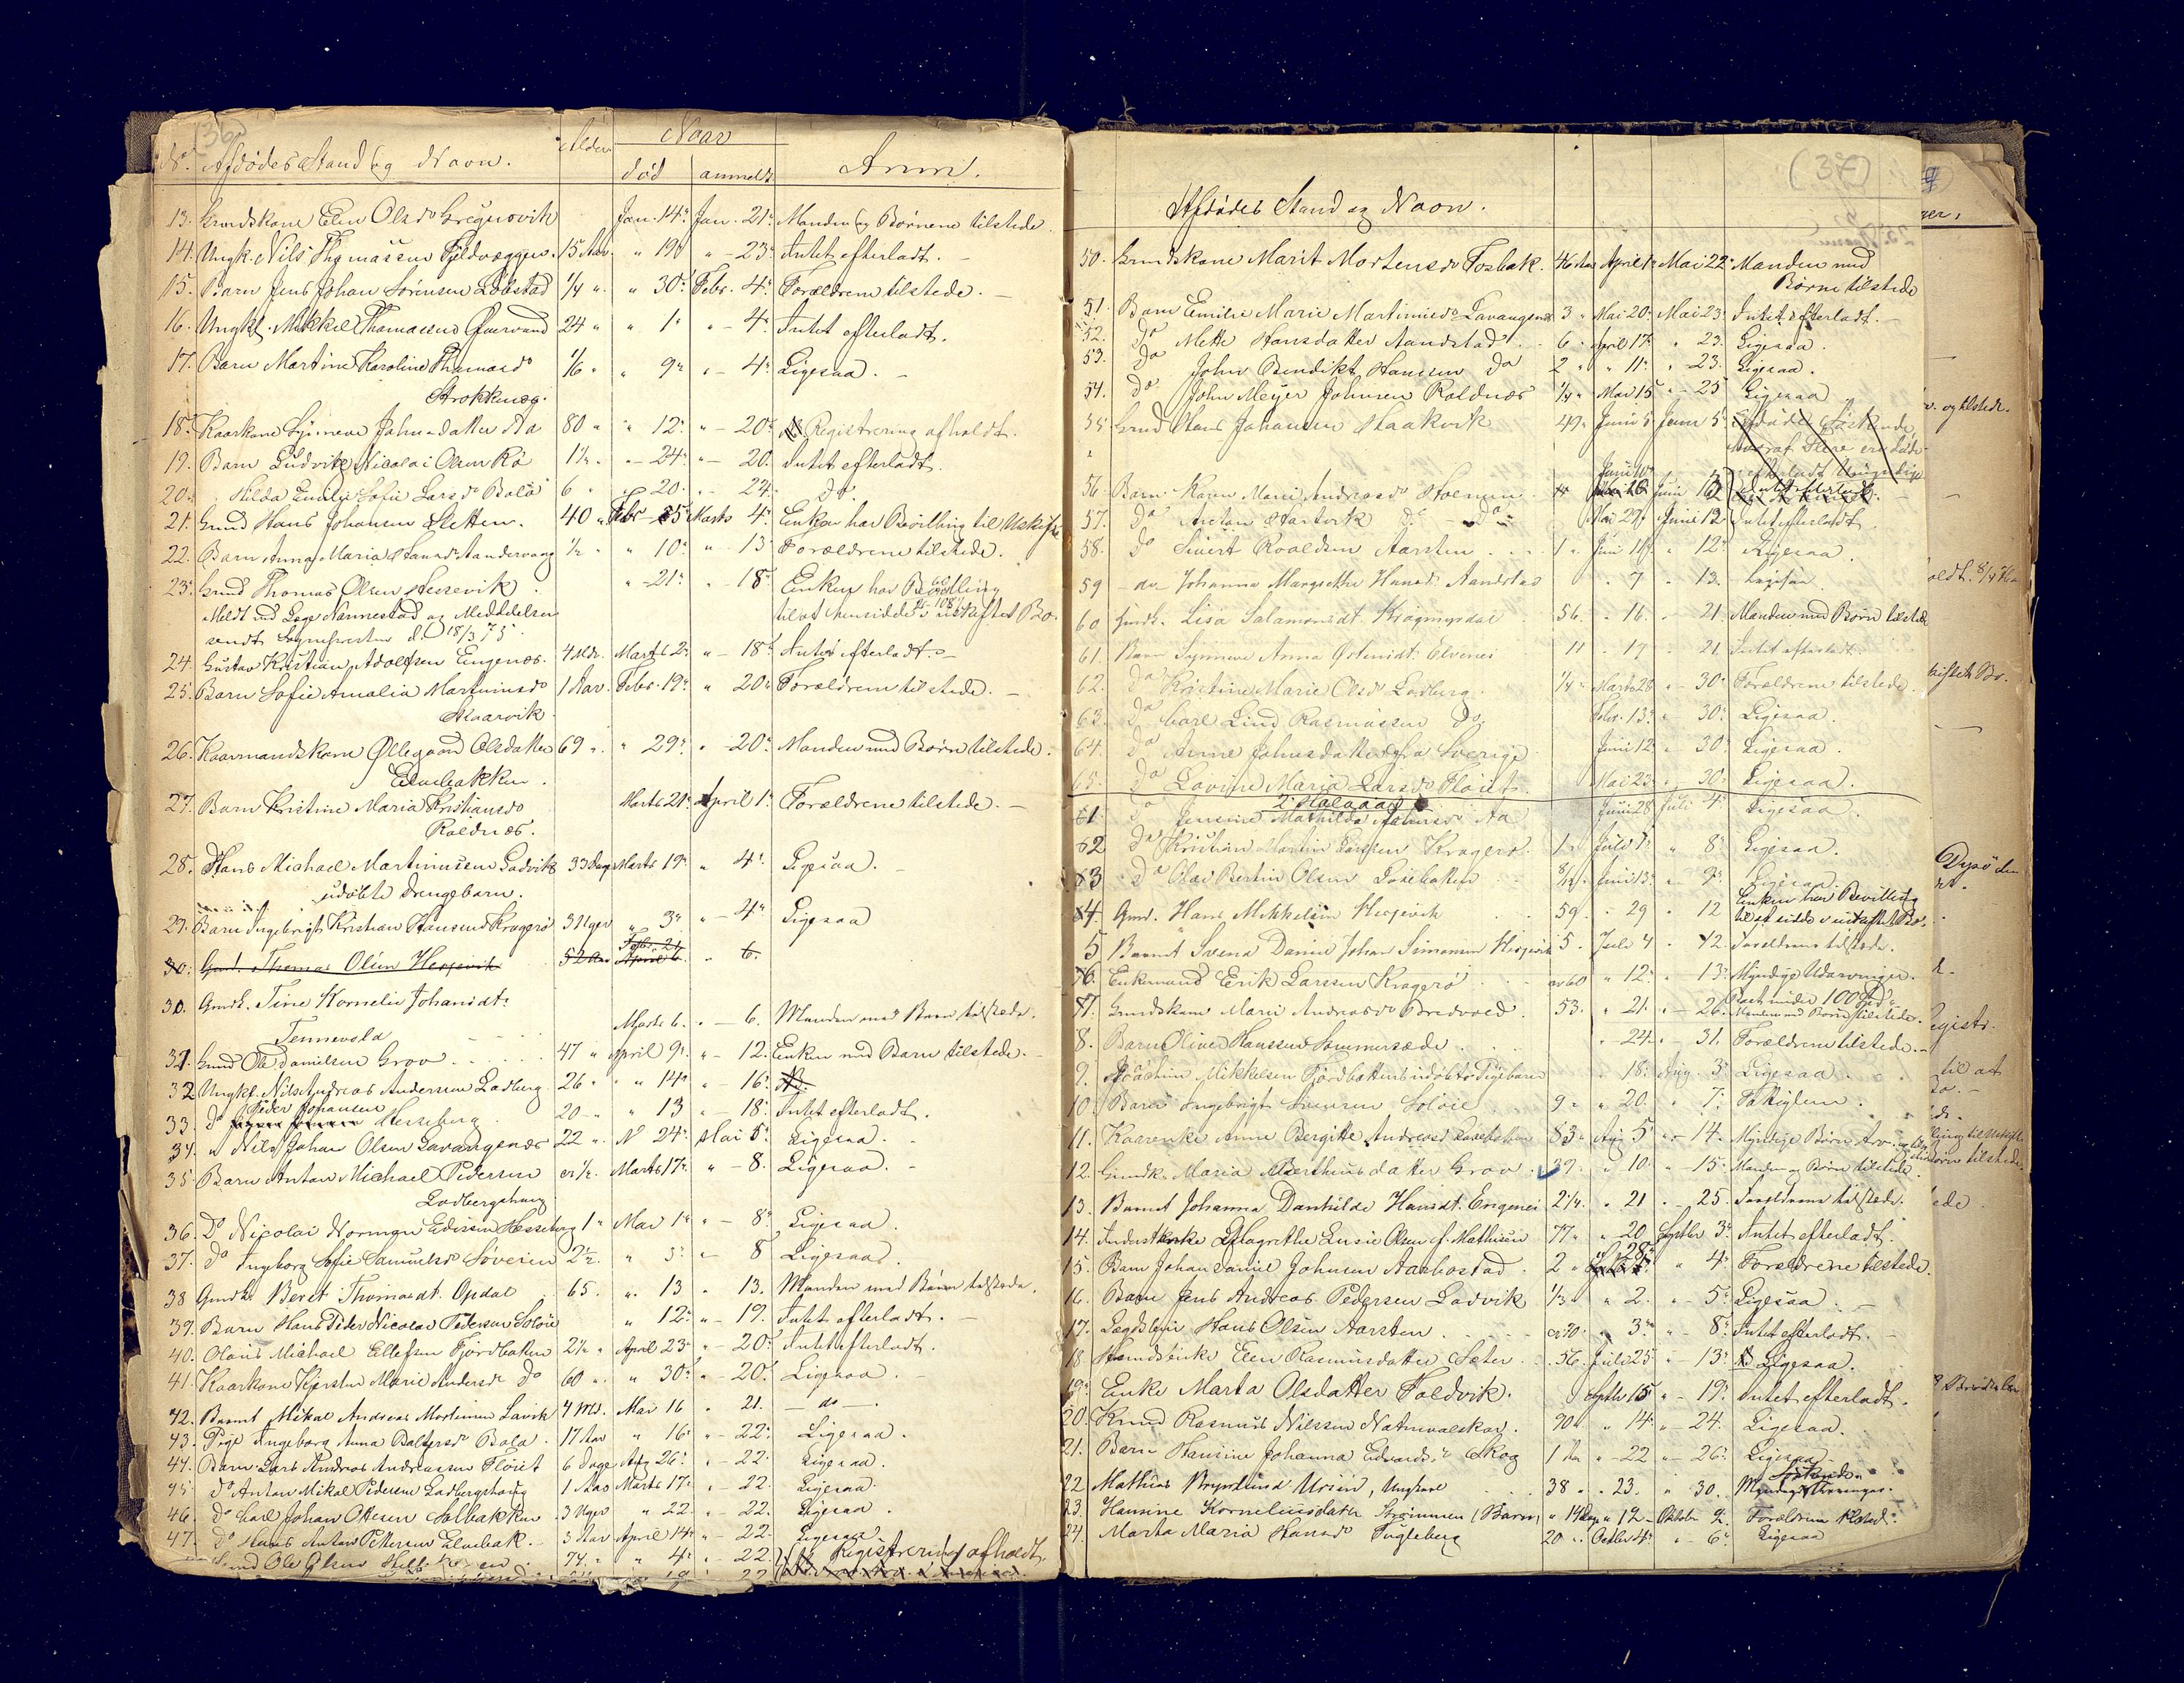 (36)
No. Afdødes Stand og Navn. Alder Naar død anmeldt Anm.
13. Grundskone Elen Olsdr Gregusvik Jan. 14. Jan. 21. Manden og Børnene tilstede.
14. Ungk. Nils Thomassen Fjeldvæggen. 15 Aar. " 19 " - 23. Intet efterladt. -
15. Barn Jens Johan Sørensen Løbstad 1/4 ". " 30. Febr. 4. Forældrene tilstede. -
16. Ungkl. Mikkel Thomassen 24 " " 1. " - 4. Intet efterladt.
17. Barn Martine Karoline Thomasdr 1/6 " " 9. " - 4. Ligesaa. -
Strokkenæs.
18. Kaarkone Synneve Johnsdatter Aa 80 " " 12. " - 20. Registrering afholdt.
19. Barn Ludvik Nicolai Olsen Rø 1 1/2 " " - 24. " - 20. Intet efterladt.
20. " Hilda Emilie Sofie Larsdr Bolø 6 " 20. " - 24. do
21. Gmd Hans Johansen Sletten. 40 " Febr. 25. Marts 4. Enken har Bevilling til Uskifte
22. Barn Anna Maria Hansdr Aandervaag 1/2 " " 10. " - 13 Forældrene tilstede.
23. Gmd Thomas Olsen Hessevik " - 21. " - 18. Enken har Bevilling
Meldt ved Lars Nannestad og Meddelelse til at hensidde i uskiftet Bo.
sendt Sognepresten d. 18/3 75.
24. Gustav Kristian Adolfsen Engenæs. 4 Mdr. Marts 2. " - 18. Intet efterladt. -
25. Barn Sofie Amalia Martinusdr 1 Aar. Febr. 19. " 20. Forældrene tilstede. -
Skaarvik.
26. Kaarmandskone Øllegaard Olsdatter 69 ". " 29. " - 20. Manden med Børn tilstede.
Elvebakken.
27. Barn Kristine Maria Kristiansdr Marts 21. April 1. Forældrene tilstede. -
Roldnæs.
28. Hans Michael Martinussen Ladvik 33 Dage Marts 19. " 4. Ligesaa. -
udøbte Drengebarn.
29. Barn Ingebrigt Kristian Hansen Kragerø 3 Uger " 3. " - 4. Ligesaa
30. Gmd. Thomas Olsen Hessevik 52 Aar Febr. 21 April 6. " 6.
30. Gmdk. Tine Kornelie Johansdt.
Tennevold Marts 6. " - 6. Manden med Børn tilstede.
31. Gmd Ole Danielsen Grov 47 " April 9. " - 12. Enken med Barn tilstede. -
32 Ungkf. Nils Andreas Andersen Ladberg 26 " " 14. " - 16.
33. Do Peder Johansen Hesseberg 20 - " 13 " - 18. Intet efterladt.
34. " Nils Johan Olsen Lavangsnæs 22 ". " 24. Mai 5. Ligesaa. -
35. Barn Anton Michael Pedersen 1/2. Marts 17. " - 8. Ligesaa. -
Ladbergshaug
36. Do Nicolai Normann Edissen Hesseberg 1 " Mai 1. " - 8. Ligesaa.
37. Do Ingeborg Sofie Samuelsdr Søveien 2 1/2. " 3. " - 8 Ligesaa.
38 Gmdk. Beret Thomasdt. Opdal 65. " 13 " 13. Manden med Børn tilstede.
39. Barn Hans Peder Nicolai Pedersen Soløie " 12. " - 19. Intet efterladt. -
40. Olaus Michael Ellefsen Fjordbakken 2 1/2 " April 23. " - 20. Intet efterladt.
41. Kaarkone Kjersten Marie Andersdr Do 60 ". " 30. " - 20. Ligesaa. -
42. Barnet Mikal Andreas Mortensen Lavik 4 Md. Mai 16 " 21. - do -
43. Pige Ingeborg Anna Baltzersdr Bola. 17 Aar " 16. " - 22. Ligesaa.
44. Barn Lars Andreas Andreassen Fløiet 6 Dage Apr. 26. " - 22. Ligesaa.
45. Do Anton Mikal Pedersen Ladbergshaug 1 Aar Marts 17. " - 22. Ligesaa.
46. Do Carl Johan Olsen Solbakken 3 Uger " 22. " - 22. Ligesaa.
47. Do Hans Anton Pettersen Elvebak. - 3 Aar April 14. " - 22. Ligesaa.
Gmd Ole Olsen 74. " " 4. " - 22. Registrering afholdt.
(37)
Afdødes Stand og Navn.
50. Grundskone Marit Mortensdr Fosbak. 46 Aar April 1. Mai 22. Manden med
Børn tilstede
51. Barn Emilie Marie Martinusdr Lavangsnæs 3 " Mai 20. Mai 23. Intet efterladt. -
52. Do Mette Hansdatter Aandstad 6 " April 17. " 23. Ligesaa.
53. Do John Bendikt Hansen Do 2 " " 11. " - 23. Ligesaa.
54. Do John Meyer Johnsen Roldnæs 1/4 " Mai 15 " - 25 Ligesaa
55 Gmd Hans Johansen Haakvik 49. Juni 5 Juni 5. Afdødes Søskende
hvoraf flere ere
efterladt Umyndige
56. Barn Karen Marie Andreasdr Holmen Juni 10 Juni 12
57. Do Anton Hartvik Do - Do Mai 29. Juni 12 Intet efterladt.
58. Do Sivert Roaldsen Aarsten 1 " Juni 11. " 12. Ligesaa.
59 do Johanna Margrethe Hansdr Aandstad " 7 " 13. Ligesaa
60 Gmdk. Lisa Salamonsdt. Krogmyrdal 56. " 16. " 21. Manden med Børn tilstede
61. Barn Synneve Anna Ostensdt. Elvenes 11 " 17 " 21. Intet efterladt.
62. Do Kristine Marie Olsdr Ladberg 1/4 " Marts 28 " - 30. Forældrene tilstede.
63. Do Carl Lind Rasmussen Do Febr. 13. " 30. Ligesaa.
64. Do Anne Johnsdatter fra Sverige Juni 12. " 30. Ligesaa.
65. Do Lovise Maria Larsdr Fløiet Mai 23. " - 30. Ligesaa.
2. Halvaar
1. Do Jensine Mathilde Johnsdr Aa Juni 28 Juli 4. Ligesaa.
2 Do Kristian Martin Larssen Kragerø. 1 " Juli 1. " 8. Ligesaa.
3 Do Olav Bertin Olsen Losebakken 8/12. Juni 13. " 9. Ligesaa.
4. Gmd. Hans Mikkelsen Hessevik 59. " 29 " 12 Enken har Bevilling
til at sidde i uskiftet Bo.
5 Barnet Svend Daniel Johan Simonsen Hessevik 5. Juli 4 " 12. Forældrene tilstede.
6. Enkemand Erik Larssen Kragerø 60 " 12. " 13. Myndige Udarvinger.
7. Grundskone Marie Andreasdr Bredvold. 53. " 21. " - 26. Boet under 100 Spd.
Manden med Børn tilstede.
8. Barn Oliver Hanssen Sommersæde. " 24. " 31. Forældrene tilstede. -
9. Joachim Mikkelsen Fjordbottens udøbte Pigebarn " 18. Aug. 3. Ligesaa.
10. Barn Ingebrigt Soløie 9 " " 20. " 7.
11. Kaarenke Anne Bergitte Andreasd 83 " Aug 5 " - 14. Myndige Børn Arv.
12. Gmndk. Maria Marthusdatter Grov 39. " 10. " - 15. Manden og Børn tilstede.
13. Barnet Johanna Danhilde Hansdt. Engenes 2 1/4. " 21 " 25. Forældrene tilstede.
14. Inderstenke Margrethe Lusie Olsen f. Mathisen 77 " " 20 Septbr 3. Intet efterladt.
15. Barn Johan Daniel Johnsen Aarbostad 2 " " 28. " 4. Forældrene tilstede.
16. Barn Jens Andreas Pedersen Ladvik 1/3 " " 2. " - 5. Ligesaa. -
17. Lægdslem Hans Olsen Aarsten 70. " 3. " - 8. Intet efterladt. -
18 Mandsenke Elen Rasmusdatter Sæter 56. Juli 25 " - 13. Ligesaa.
19. Enke Marta Olsdatter Foldvik. Septb 15. " - 19. Intet efterladt.
20. Knud Rasmus Nilssen 70 " " 14. " - 24. Ligesaa.
21. Barn Hansine Johanna Edvardsdr Skog 1 Aar " - 22 " - 26. Ligesaa
22 Mathias Brynlund Ursin, Ungkarl 38 " " 23. " 30. Myndige Søskende Arvinger.
23. Hansine Korneliusdatter Strømmen (Barn) " 14 Dage " 12 - Oktober 2. Forældrene tilsted.
24. Marta Maria Hansdr Fugleberg 20 " Octbr 4. " - 6. Ligesaa